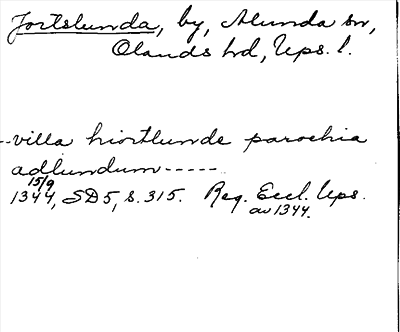 Jortslunda, by, Alunda sn,
Olands hd, Ups. l.
--villa hiortlunde parochia
adlundum-----
15/9
1344, SD5, s. 315. Reg. Eccl. Ups.
av 1344.